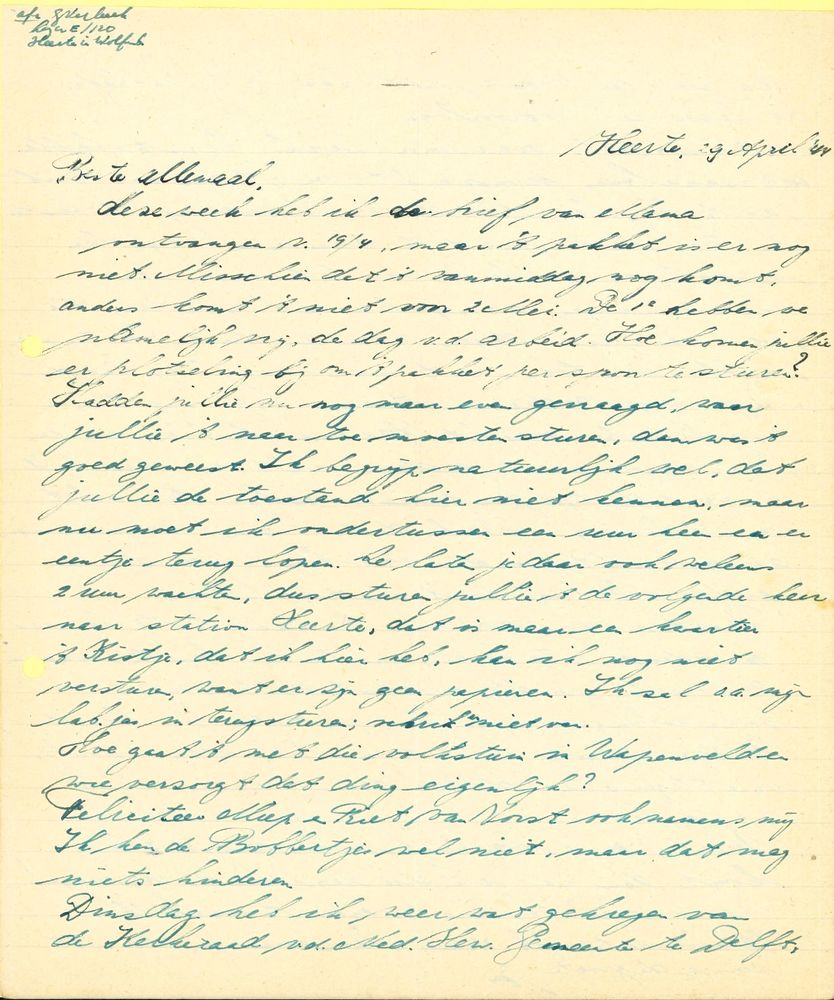 Lager E/120
Heerte in Wolfenb
Heerte, 29 April '44
Beste allemaal,
Deze week heb ik de brief van Mama
ontvangen v. 19/4, maar 't pakket is er nog
niet. Misschien dat 't vanmiddag nog komt,
anders komt 't niet voor 2 Mei. De 1e hebben we
namelijk vrij, de dag v.d. arbeid. Hoe komen jullie
er plotseling bij om 't pakket per spoor te sturen?
Hadden jullie nu nog maar even gevraagd, waar
jullie 't naar toe moesten sturen, dan was 't
goed geweest. Ik begrijp natuurlijk wel, dat
jullie de toestand hier niet kennen, maar
nu moet ik ondertussen een uur heen en er
eentje terug lopen. Ze laten je daar ook weleens
2 uur wachten, dus sturen jullie 't de volgende keer
naar station Heerte, dat is maar een kwartier
't Kistje, dat ik hier heb, kan ik nog niet
versturen, want er zijn geen papieren. Ik zal o.a. mijn
lab. jas in terugsturen; schrik niet van.
Hoe gaat 't met die volkstuin in Wapenveld en
wie verzorgt dat ding eigenlijk?
Feliciteer Miep en Riet van Vorst ook namens mij
Ik ken de Bobbertjes wel niet, maar dat mag
niets hinderen
Dinsdag heb ik weer wat gekregen van
de Kerkeraad v.d. Ned. Herv. Gemeente te Delft,